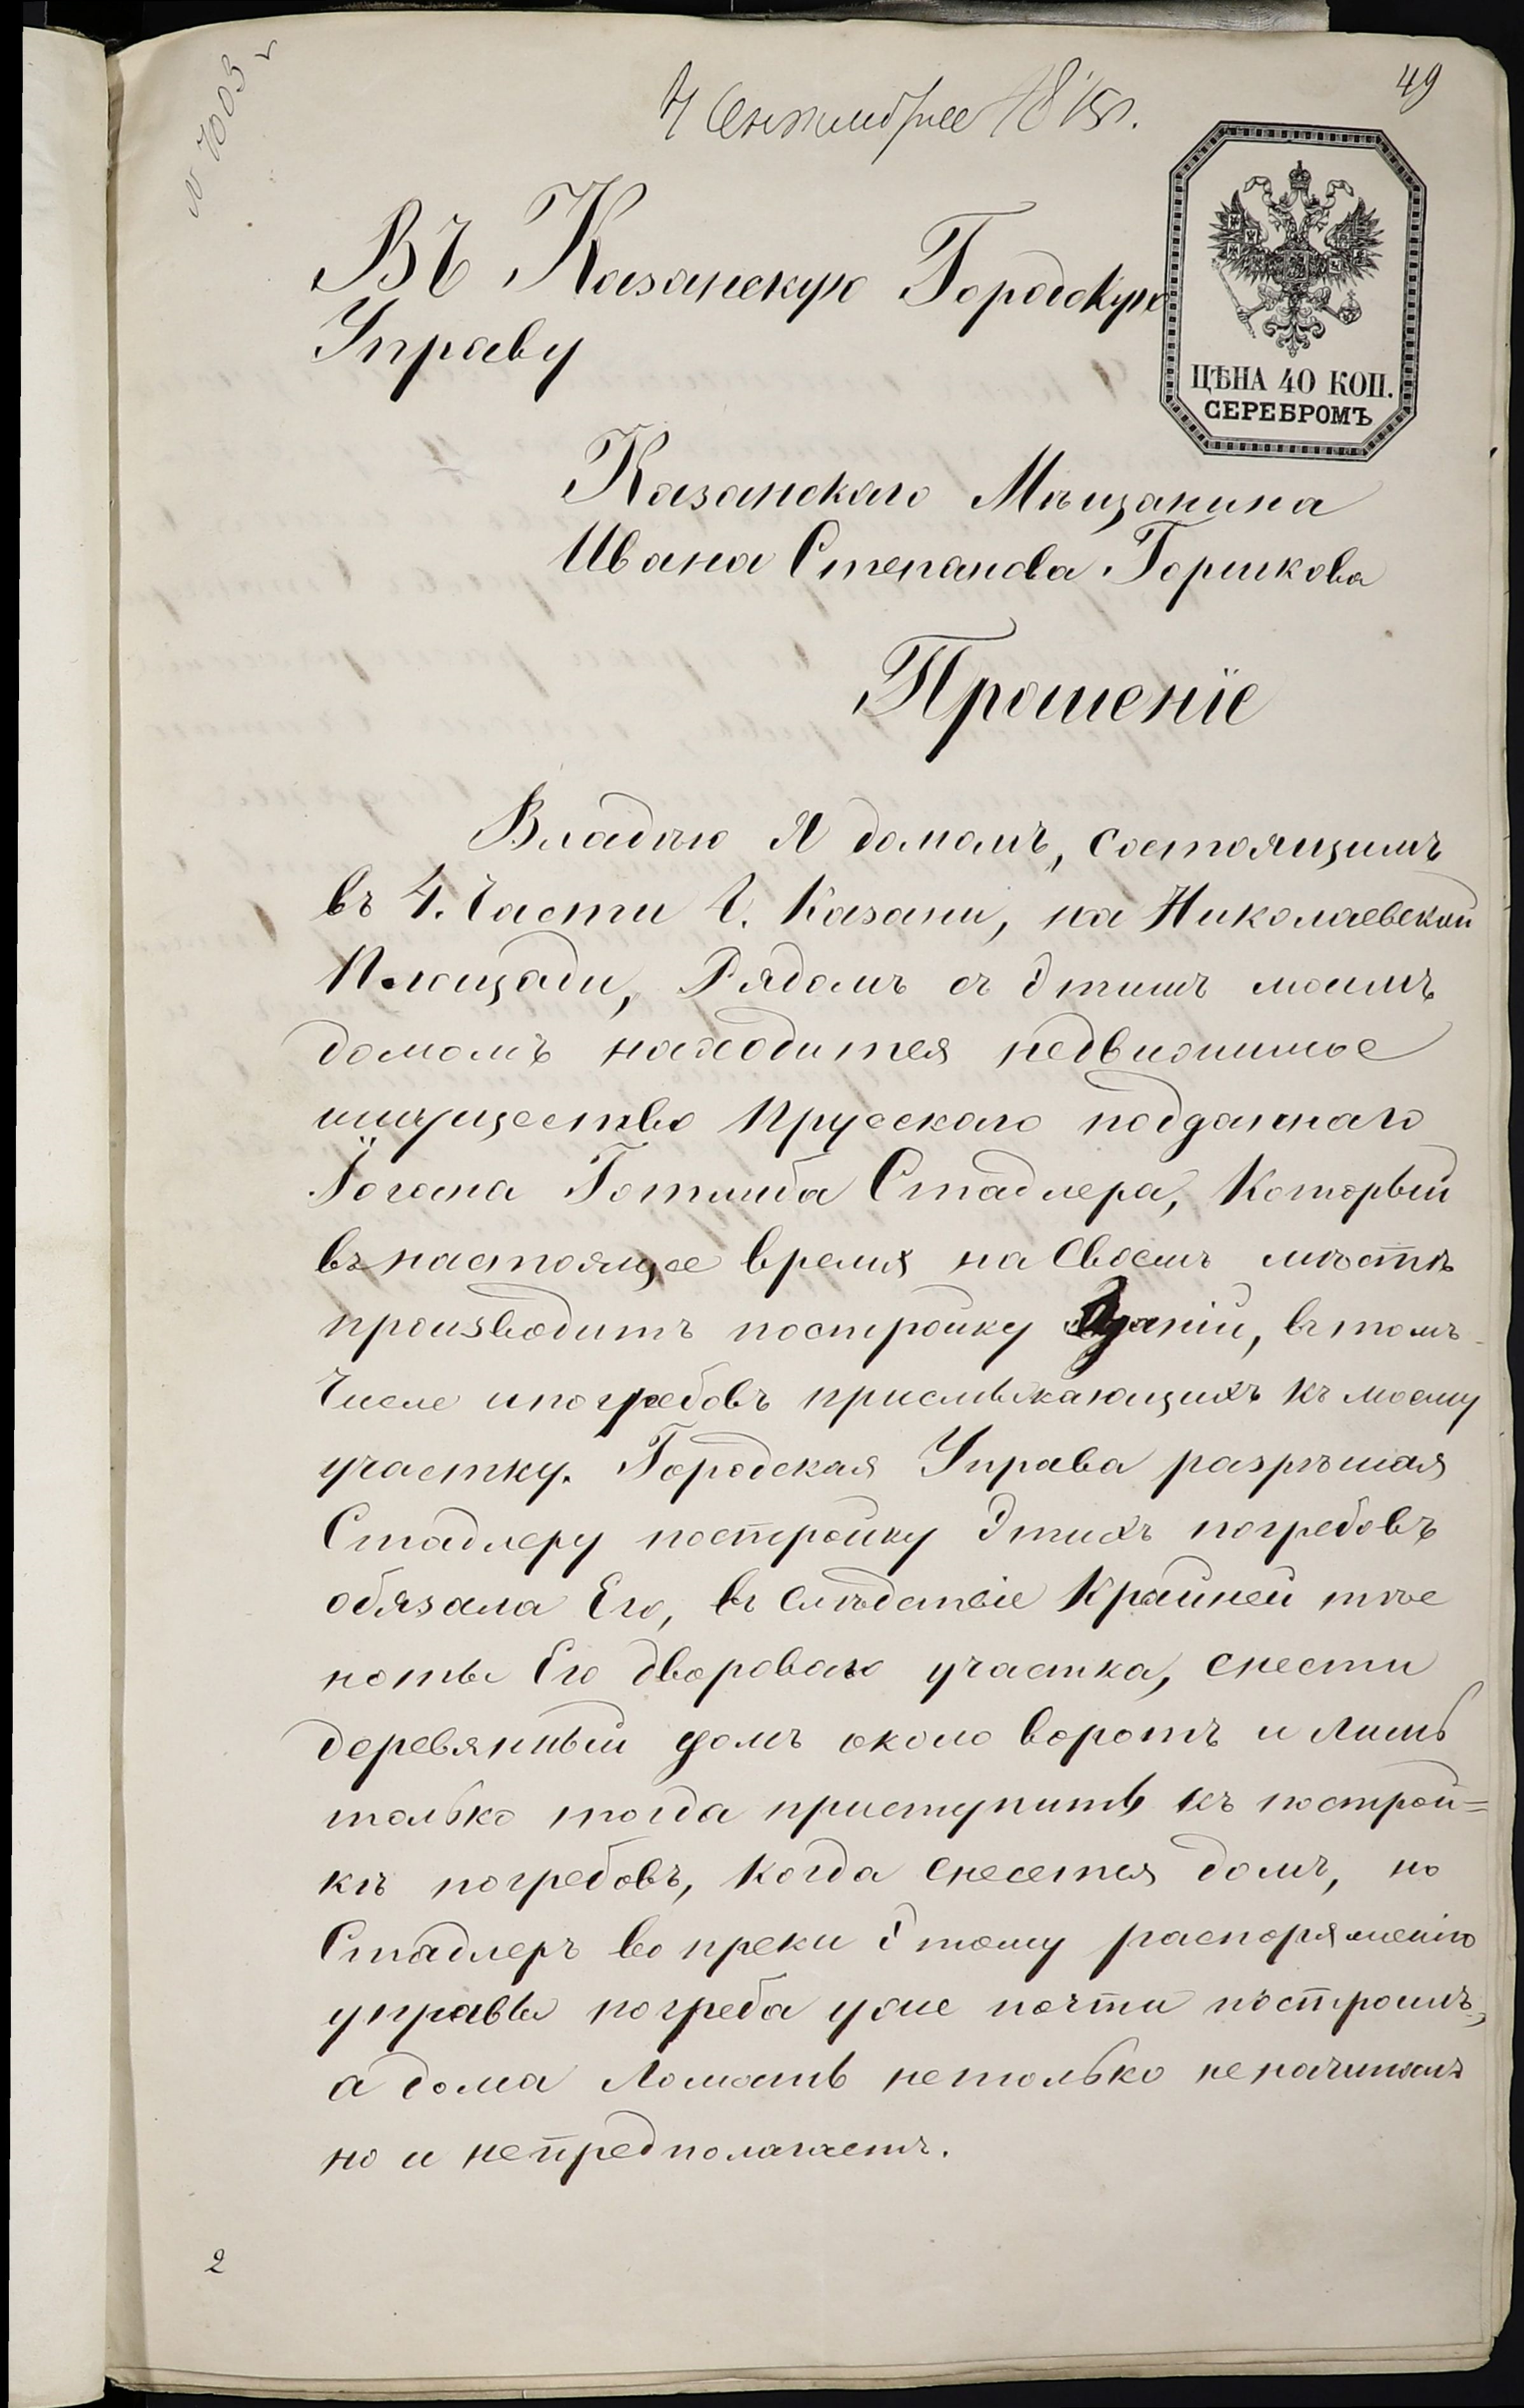 49
№ 7003
Сентября
Въ Казанскую Городскую
Управу
ЦѢНА 40 КОП.
СЕРЕБРОМЪ
Казанскаго Мѣщанина
Ивана Степанова Горшкова
Прошеніе
Владѣю Я домомъ, состоящимъ
въ 4. Части Г. Казани, на Николаевской
Площади, Рядомъ съ Этимъ моимъ
домомъ находится недвижимое
имущество Прусскаго подданнаго
Іогана Готлиба Стадлера, Который
въ настоящее время на Своемъ мѣстѣ
производитъ постройку Зданій, въ томъ
Числе и погребовъ присмыкающихъ къ моему
участку. Городская Управа разрѣшая
Стадлеру постройку Этихъ погребовъ
обязала Его, въ слѣдствіе Крайней тѣс
ноты Его двороваго участка, снести
деревянный домъ около воротъ и лишь
только тогда приступить къ построй=
кѣ погребовъ, Когда снесется домъ, но
Стадлеръ во преки Этому распоряженію
управы погреба уже почти построилъ,
а дома Ломать нетолько неначиналъ
но и непредполагаетъ.
2